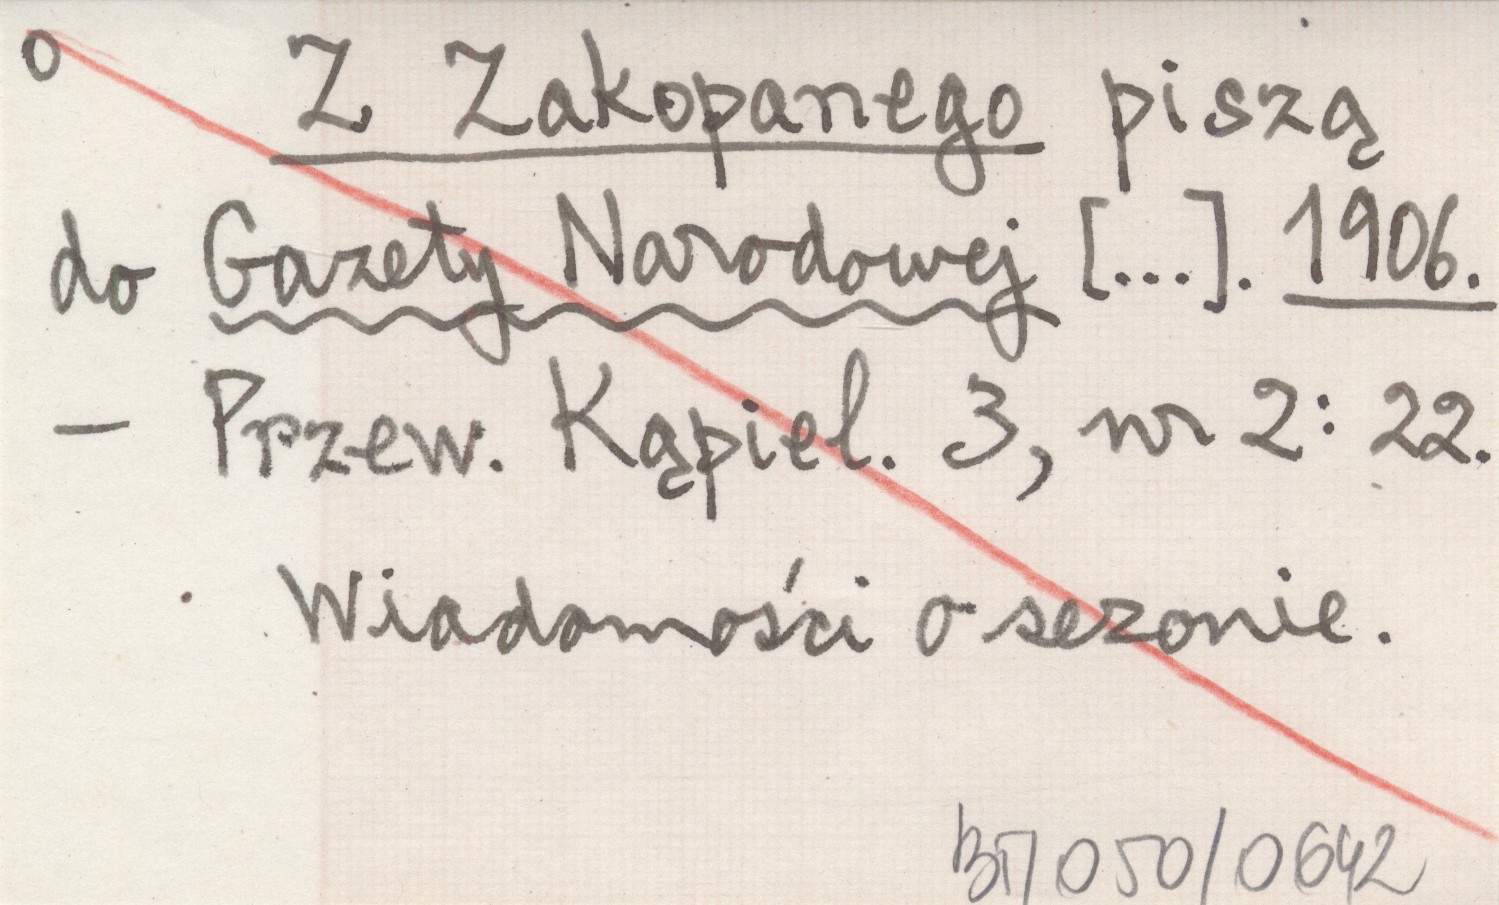 o Z Zakopanego piszą
do Gazety Narodowej [...]. 1906.
— Przew. Kąpiel. 3, nr 2: 22.
Wiadomości o sezonie.
BT/050/0642